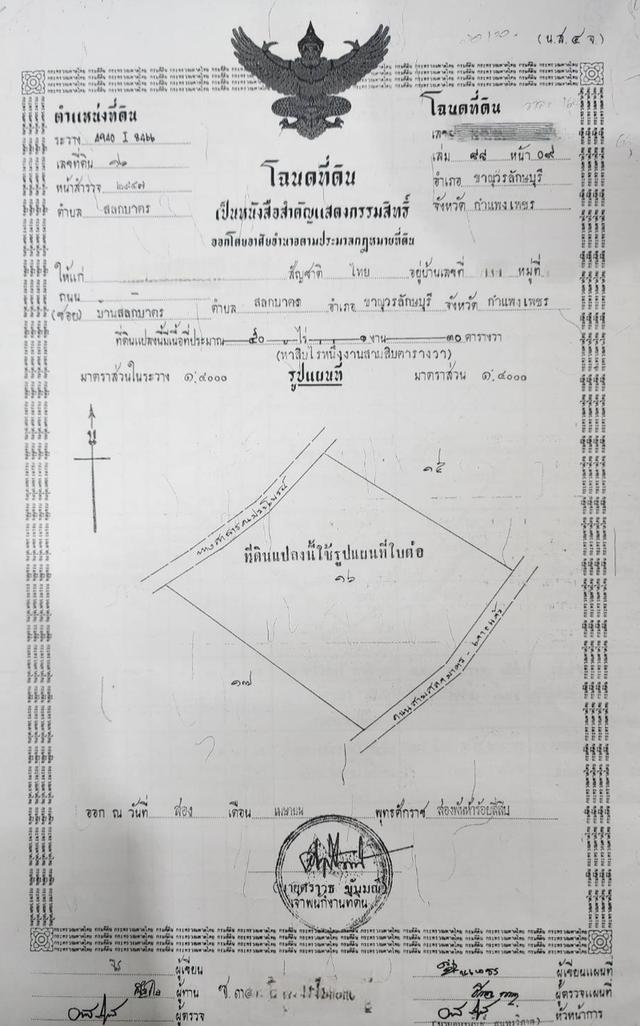 (น.ส.๔ จ.)
ตำแหน่งที่ดิน
ระวาง 4940 I 8466
เลขที่ดิน ๑๖
หน้าสำรวจ ๒๙๔๗
ตำบล สลกบาตร
โฉนดที่ดิน
เล่ม ๘๘ หน้า ๐๙
อำเภอ ขาณุวรลักษบุรี
จังหวัด กำแพงเพชร
โฉนดที่ดิน
เป็นหนังสือสำคัญแสดงกรรมสิทธิ์
ออกโดยอาศัยอำนาจตามประมวลกฎหมายที่ดิน
ให้แก่ สัญชาติ ไทย อยู่บ้านเลขที่ หมู่ที่
ถนน
(ซอย) บ้านสลกบาตร ตำบล สลกบาตร อำเภอ ขาณุวรลักษบุรี จังหวัด กำแพงเพชร
ที่ดินแปลงนี้มีเนื้อที่ประมาณ ๕๐ ไร่ ๑ งาน ๓๐ ตารางวา
(ห้าสิบไร่หนึ่งงานสามสิบตารางวา)
มาตราส่วนในระวาง ๑:๔๐๐๐ รูปแผนที่ มาตราส่วน ๑:๔๐๐๐
น
๑๕
ทางสาธารณประโยชน์
ที่ดินแปลงนี้ใช้รูปแผนที่ใบต่อ
๑๖
๑๗
ออก ณ วันที่ สอง เดือน เมษายน พุทธศักราช สองพันห้าร้อยสี่สิบ
เจ้าพนักงานที่ดิน
ผู้เขียน
ผู้ทาน
ผู้ตรวจ
ผู้เขียนแผนที่
ผู้ตรวจแผนที่
หัวหน้าการ